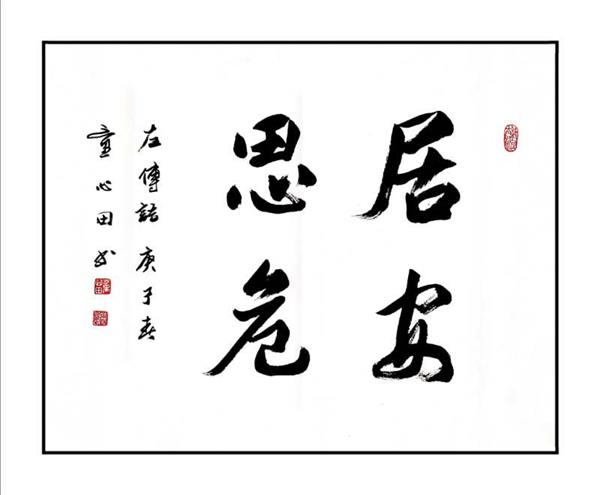 居安
思危
左傳語 庚子春
童心田书